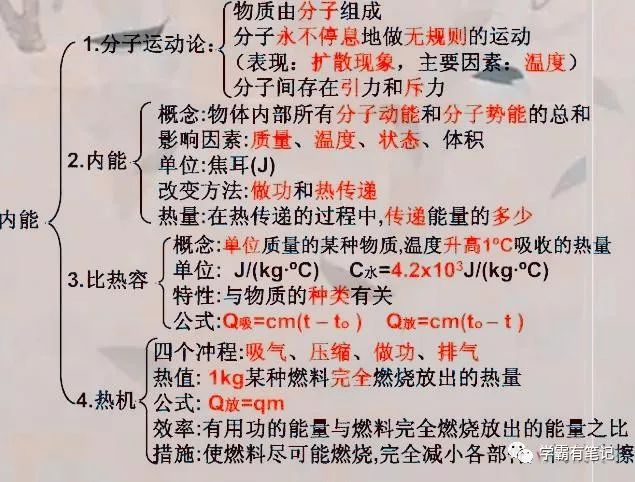 物质由分子组成
1.分子运动论:
分子永不停息地做无规则的运动
(表现：扩散现象，主要因素：温度)
分子间存在引力和斥力
概念:物体内部所有分子动能和分子势能的总和
影响因素:质量、温度、状态、体积
2.内能
单位:焦耳(J)
改变方法:做功和热传递
热量:在热传递的过程中,传递能量的多少
内能
概念:单位质量的某种物质,温度升高1ºC吸收的热量
3.比热容
单位: J/(kg·ºC) C水=4.2x10³J/(kg·ºC)
特性:与物质的种类有关
公式:Q吸=cm(t－to) Q放=cm(to－t)
四个冲程:吸气、压缩、做功、排气
热值: 1kg某种燃料完全燃烧放出的热量
4.热机
公式: Q放=qm
效率:有用功的能量与燃料完全燃烧放出的能量之比
措施:使燃料尽可能燃烧,完全减小各部 擦
学霸有笔记